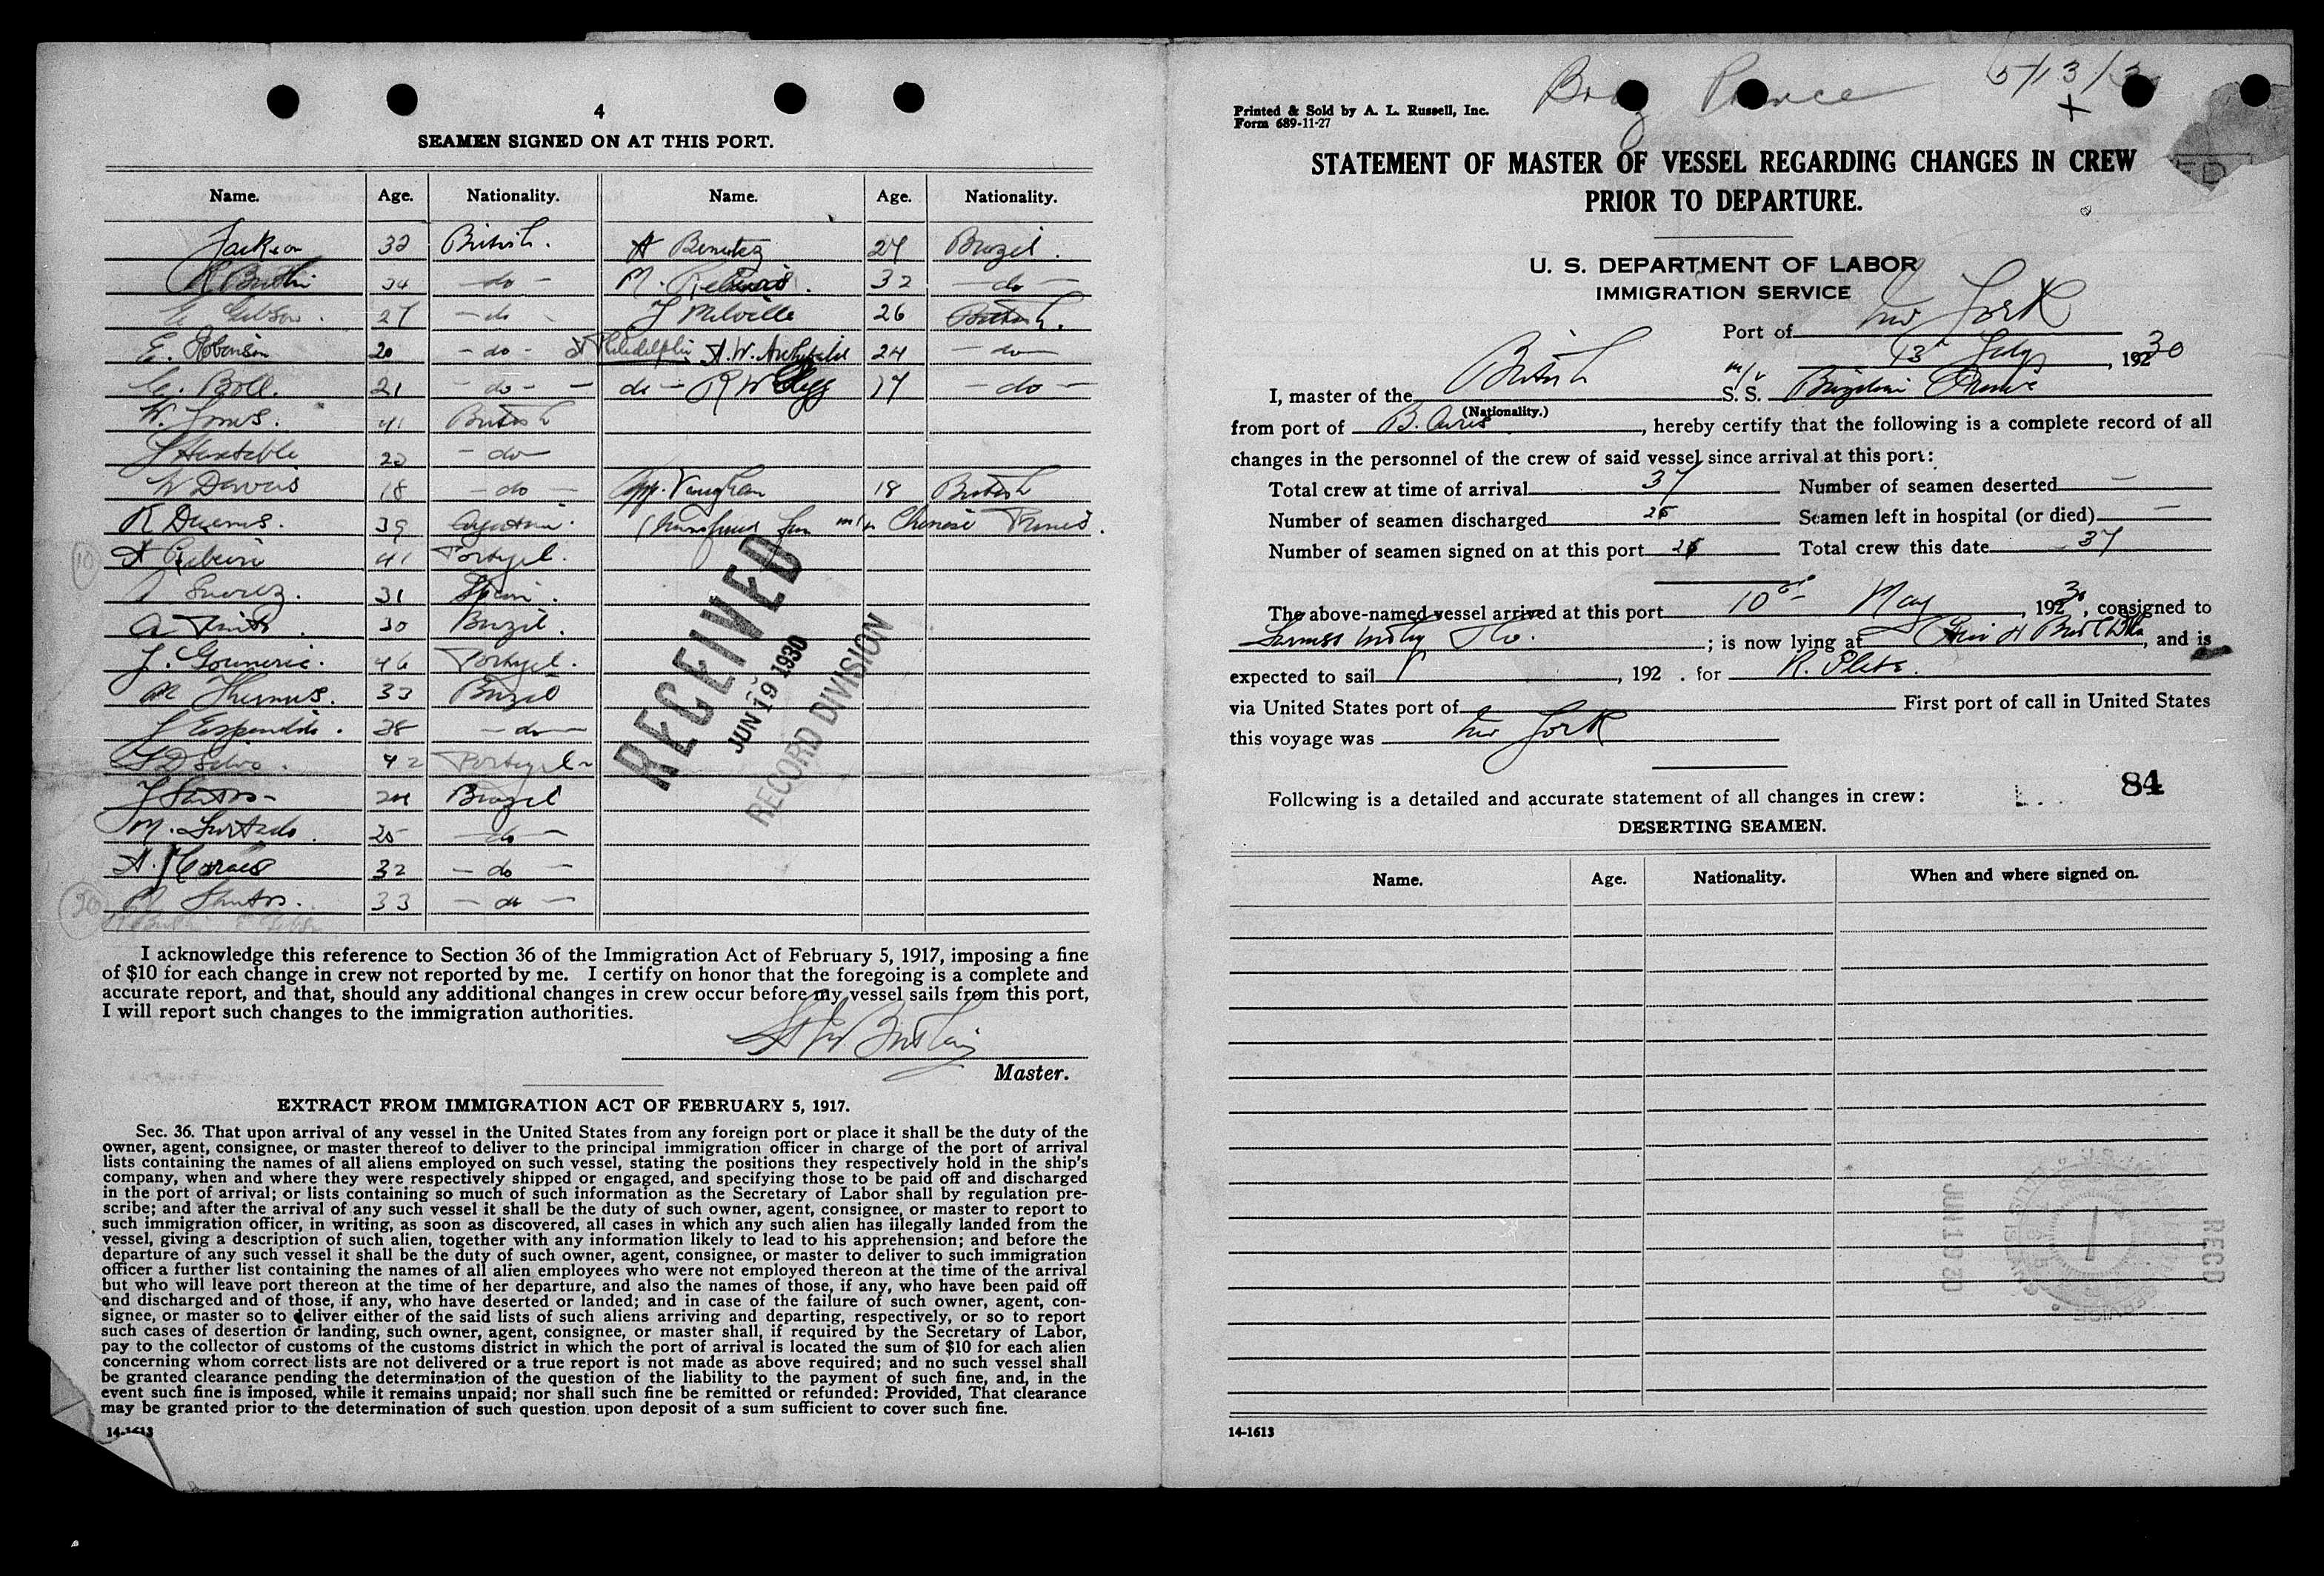 4
SEAMEN SIGNED ON AT THIS PORT.
Name. Age. Nationality. Name. Age. Nationality.
Jackson 32 British. A Benetez 27 Brazil.
34 - do - M. 32 - do -
E. Gibson. 27 - do - J Melville 26 British.
E. Robinson 20 - do - Philadelphia A.W. Archibald 24 - do -
G. Boll. 21 - do - - do - R W Clegg 17 - do -
W. Jones. 41 British
J Huxtable 22 - do -
W Davies 18 - do - App. Vaughan 18 British
R 39 Argentine. (Transferred from m/v Chinese Prince.
10 A Ribeiro 41 Portugal.
Suarez. 31 Spain.
A 30 Brazil.
J. 46 Portugal.
M 33 Brazil
J 38 - do -
J D Silva. 42 Portugal -
J Santos - 24 Brazil
M. Furtado. 25 - do -
A. Moraes 32 - do -
20 M Santos. 33 - do -
RECEIVED
JUN 19 1930
RECORD DIVISION
I acknowledge this reference to Section 36 of the Immigration Act of February 5, 1917, imposing a fine
of $10 for each change in crew not reported by me. I certify on honor that the foregoing is a complete and
accurate report, and that, should any additional changes in crew occur before my vessel sails from this port,
I will report such changes to the immigration authorities.
Master.
EXTRACT FROM IMMIGRATION ACT OF FEBRUARY 5, 1917.
Sec. 36. That upon arrival of any vessel in the United States from any foreign port or place it shall be the duty of the
owner, agent, consignee, or master thereof to deliver to the principal immigration officer in charge of the port of arrival
lists containing the names of all aliens employed on such vessel, stating the positions they respectively hold in the ship's
company, when and where they were respectively shipped or engaged, and specifying those to be paid off and discharged
in the port of arrival; or lists containing so much of such information as the Secretary of Labor shall by regulation pre-
scribe; and after the arrival of any such vessel it shall be the duty of such owner, agent, consignee, or master to report to
such immigration officer, in writing, as soon as discovered, all cases in which any such alien has illegally landed from the
vessel, giving a description of such alien, together with any information likely to lead to his apprehension; and before the
departure of any such vessel it shall be the duty of such owner, agent, consignee, or master to deliver to such immigration
officer a further list containing the names of all alien employees who were not employed thereon at the time of the arrival
but who will leave port thereon at the time of her departure, and also the names of those, if any, who have been paid off
and discharged and of those, if any, who have deserted or landed; and in case of the failure of such owner, agent, con-
signee, or master so to deliver either of the said lists of such aliens arriving and departing, respectively, or so to report
such cases of desertion or landing, such owner, agent, consignee, or master shall, if required by the Secretary of Labor,
pay to the collector of customs of the customs district in which the port of arrival is located the sum of $10 for each alien
concerning whom correct lists are not delivered or a true report is not made as above required; and no such vessel shall
be granted clearance pending the determination of the question of the liability to the payment of such fine, and, in the
event such fine is imposed, while it remains unpaid; nor shall such fine be remitted or refunded: Provided, That clearance
may be granted prior to the determination of such question upon deposit of a sum sufficient to cover such fine.
14-1613
Braz Prince 5/13/3
Printed & Sold by A. L. Russell, Inc.
Form 689-11-27
STATEMENT OF MASTER OF VESSEL REGARDING CHANGES IN CREW
PRIOR TO DEPARTURE.
U. S. DEPARTMENT OF LABOR
IMMIGRATION SERVICE
Port of New York
13 July, 1930
I, master of the British m/v S. S. Brazilian Prince
(Nationality.)
from port of B. Aires, hereby certify that the following is a complete record of all
changes in the personnel of the crew of said vessel since arrival at this port:
Total crew at time of arrival 37 Number of seamen deserted —
Number of seamen discharged 26 Seamen left in hospital (or died) —
Number of seamen signed on at this port 26 Total crew this date 37
The above-named vessel arrived at this port 10th May, 1930, consigned to
Furness Withy & Co.; is now lying at, and is
expected to sail, 192 . for R. Plate.
via United States port of First port of call in United States
this voyage was New York
Following is a detailed and accurate statement of all changes in crew: 84
DESERTING SEAMEN.
Name. Age. Nationality. When and where signed on.
14-1613